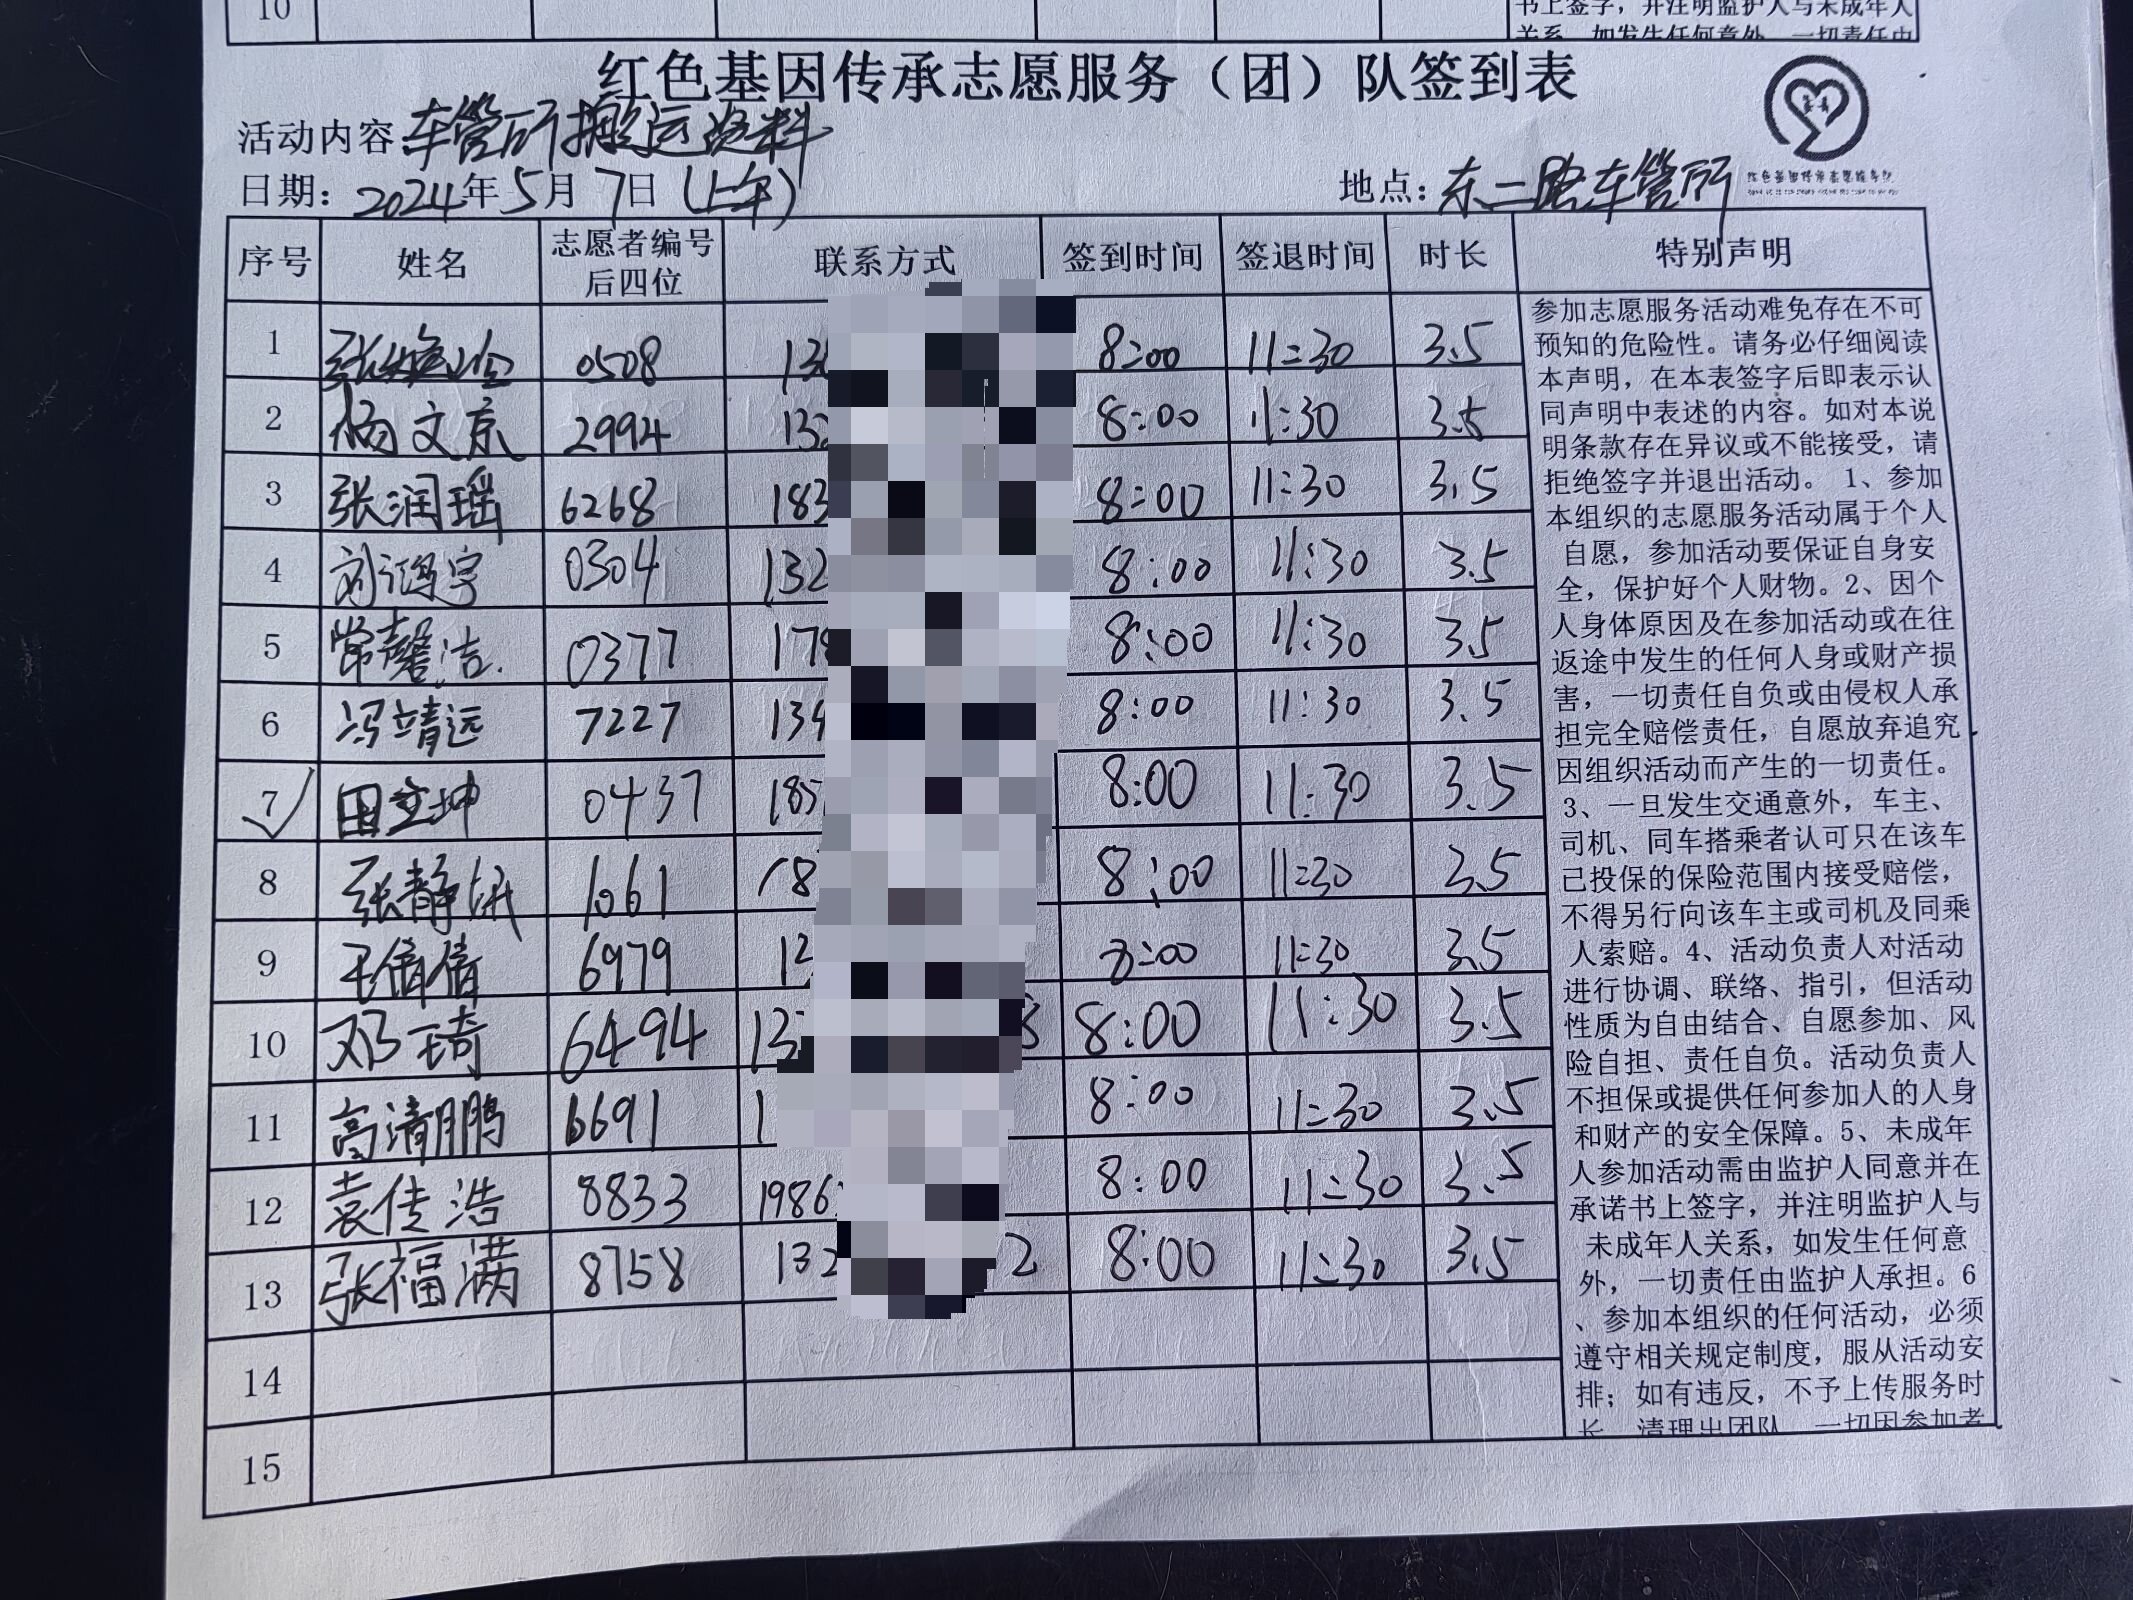 10
书上签字，并注明监护人与未成年人
关系，如发生任何意外，一切责任由
红色基因传承志愿服务（团）队签到表
活动内容：车管所搬运资料
日期：2024年5月7日（上午）
地点：东二路车管所
序号 姓名 志愿者编号后四位 联系方式 签到时间 签退时间 时长 特别声明
1 0508 8:00 11:30 3.5
2 杨文京 2994 8:00 11:30 3.5
3 张润瑶 6268 183 8:00 11:30 3.5
4 刘鸿宇 0304 132 8:00 11:30 3.5
5 常馨洁 0377 8:00 11:30 3.5
6 冯靖远 7227 8:00 11:30 3.5
7 田立坤 0437 8:00 11:30 3.5
8 张静 1061 8:00 11:30 3.5
9 王倩倩 6979 8:00 11:30 3.5
10 邓琦 6494 8:00 11:30 3.5
11 高清鹏 6691 8:00 11:30 3.5
12 袁传浩 8833 1986 8:00 11:30 3.5
13 张福满 8758 132 2 8:00 11:30 3.5
14
15
参加志愿服务活动难免存在不可
预知的危险性。请务必仔细阅读
本声明，在本表签字后即表示认
同声明中表述的内容。如对本说
明条款存在异议或不能接受，请
拒绝签字并退出活动。 1、参加
本组织的志愿服务活动属于个人
自愿，参加活动要保证自身安
全，保护好个人财物。2、因个
人身体原因及在参加活动或在往
返途中发生的任何人身或财产损
害，一切责任自负或由侵权人承
担完全赔偿责任，自愿放弃追究
因组织活动而产生的一切责任。
3、一旦发生交通意外，车主、
司机、同车搭乘者认可只在该车
已投保的保险范围内接受赔偿，
不得另行向该车主或司机及同乘
人索赔。4、活动负责人对活动
进行协调、联络、指引，但活动
性质为自由结合、自愿参加、风
险自担、责任自负。活动负责人
不担保或提供任何参加人的人身
和财产的安全保障。5、未成年
人参加活动需由监护人同意并在
承诺书上签字，并注明监护人与
未成年人关系，如发生任何意
外，一切责任由监护人承担。6
、参加本组织的任何活动，必须
遵守相关规定制度，服从活动安
排；如有违反，不予上传服务时
长，清理出团队，一切因参加者